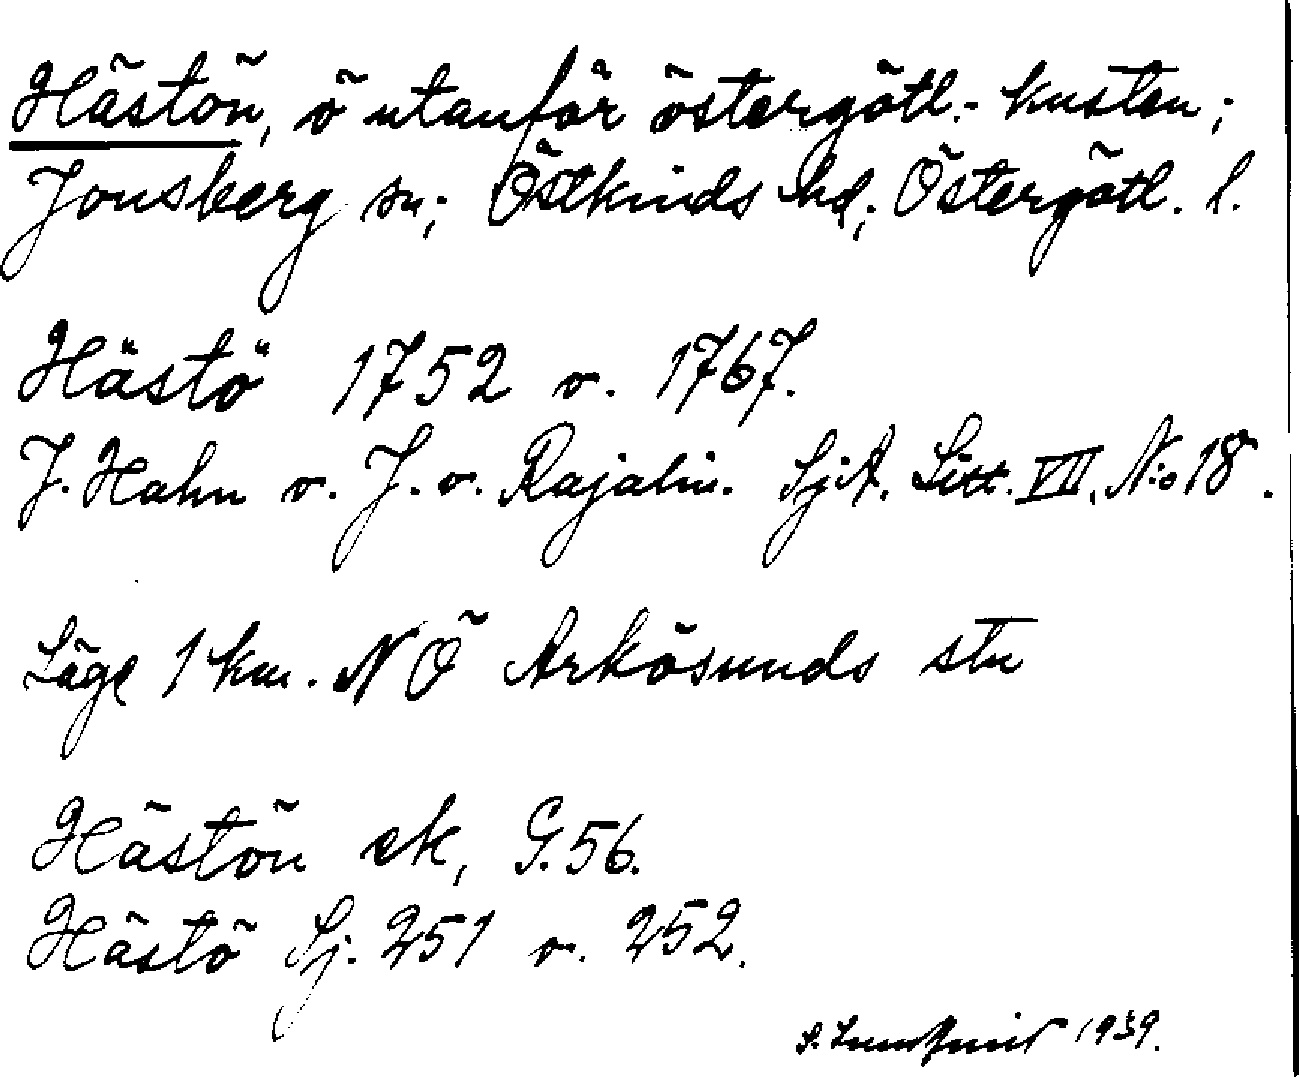 Hästön, ö utanför östergötl. kusten;
Jonsberg sn; Östkinds hd; Östergötl. l.
Hästö 1752 o. 1767.
J. Hahn o. J. v. Rajalin. SjA. Litt. VII, N:o 18.
Läge 1 km. NÖ Arkösunds stn
Hästön ek, G. 56.
Hästö Sj. 251 o. 252.
1939.